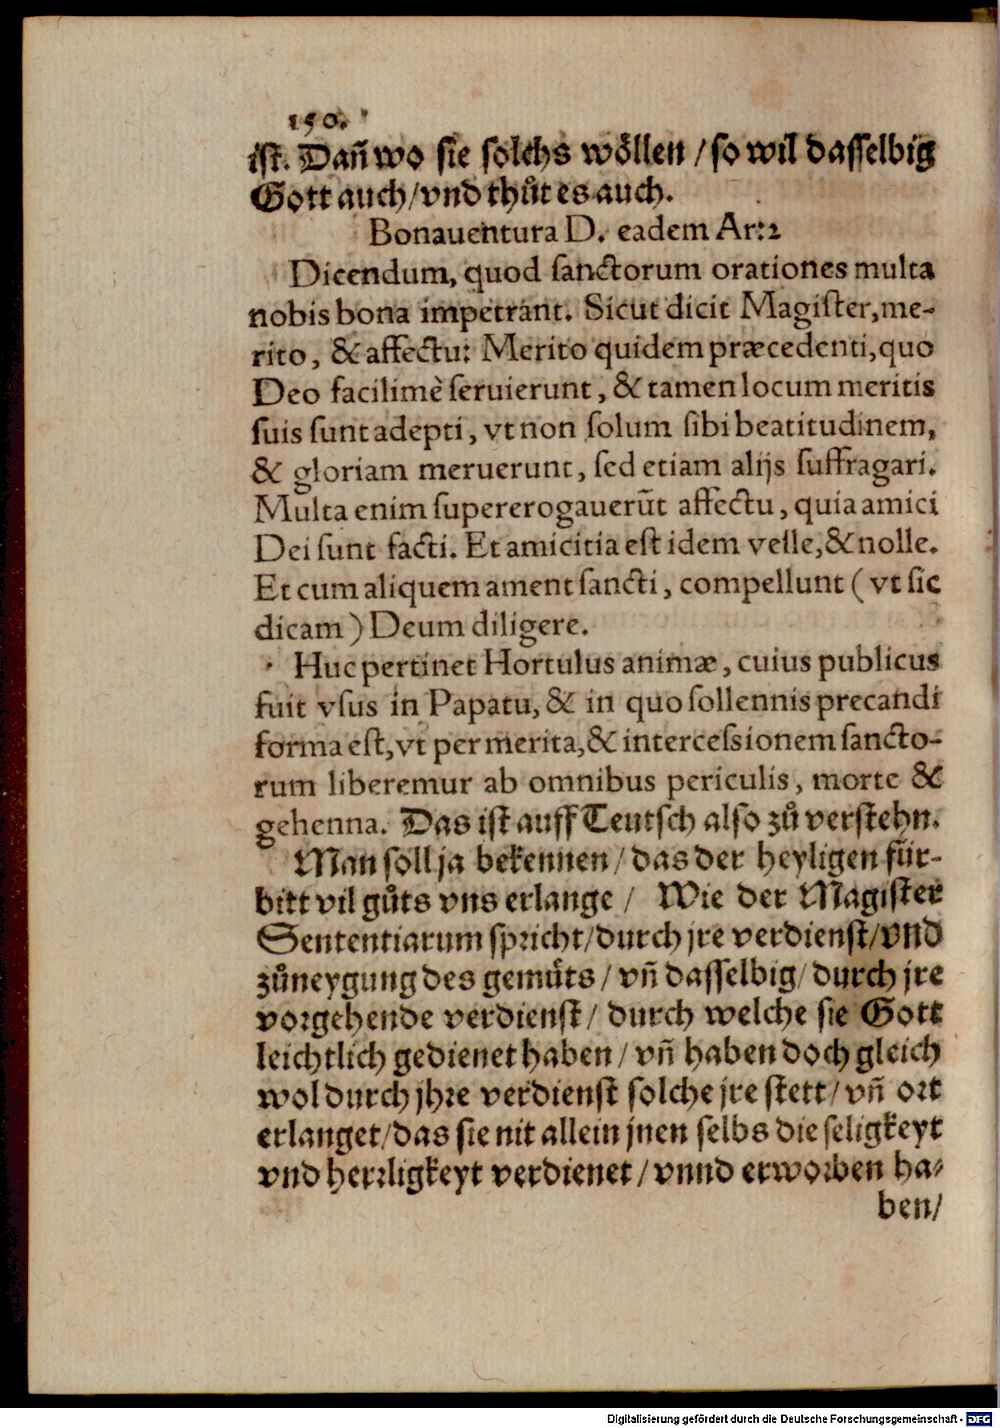 150.
ist. Dañ wo sie solchs wöllen / so wil dasselbig
Gott auch / vnd thůt es auch.
Bonauentura D. eadem Ar: 2
Dicendum, quod sanctorum orationes multa
nobis bona impetrant. Sicut dicit Magister, me-
rito, & affectu: Merito quidem præcedenti, quo
Deo facilimè seruierunt, & tamen locum meritis
suis sunt adepti, vt non solum sibi beatitudinem,
& gloriam meruerunt, sed etiam alijs suffragari.
Multa enim supererogauerūt affectu, quia amici
Dei sunt facti. Et amicitia est idem velle, & nolle.
Et cum aliquem ament sancti, compellunt ( vt sic
dicam ) Deum diligere.
Huc pertinet Hortulus animæ, cuius publicus
fuit vsus in Papatu, & in quo sollennis precandi
forma est, vt per merita, & intercessionem sancto-
rum liberemur ab omnibus periculis, morte &
gehenna. Das ist auff Teutsch also zů verstehn.
Man soll ja bekennen / das der heyligen für-
bitt vil gůts vns erlange / Wie der Magister
Sententiarum spricht / durch jre verdienst / vnd
zůneygung des gemůts / vñ dasselbig / durch jre
vorgehende verdienst / durch welche sie Gott
leichtlich gedienet haben / vñ haben doch gleich
wol durch jhre verdienst solche jre stett / vñ ort
erlanget / das sie nit allein jnen selbs die seligkeyt
vnd herrligkeyt verdienet / vnnd erworben ha-
ben /
Digitalisierung gefördert durch die Deutsche Forschungsgemeinschaft - DFG